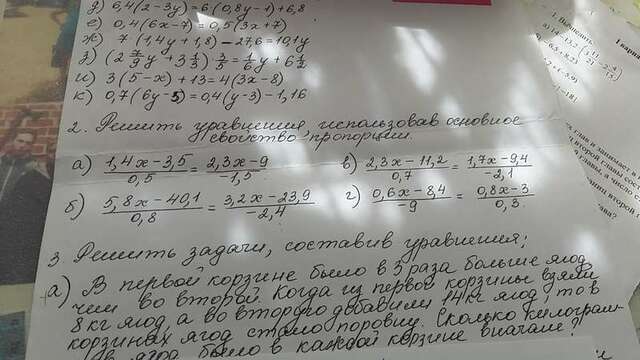 д) 6,4(2-3y)=6(0,8y-1)+6,8
е) 0,4(6x-7)=0,5(3x+7)
ж) 7(1,4y+1,8)-27,6=10,1y
з) (2 7/9 y + 3 1/3) 3/5 = 1/6 y + 6 1/2
и) 3(5-x)+13=4(3x-8)
к) 0,7(6y-5)=0,4(y-3)-1,16
2. Решить уравнения, использовав основное
свойство пропорции.
а) (1,4x-3,5)/0,5 = (2,3x-9)/-1,5 в) (2,3x-11,2)/0,7 = (1,7x-9,4)/-2,1
б) (5,8x-40,1)/0,8 = (3,2x-23,9)/-2,4 г) (0,6x-8,4)/-9 = (0,8x-3)/0,3
3. Решить задачи, составив уравнения:
а) В первой корзине было в 3 раза больше ягод,
чем во второй. Когда из первой корзины взяли
8 кг ягод, а во вторую добавили 14 кг ягод, то в
корзинах ягод стало поровну. Сколько килограм-
ов ягод было в каждой корзине вначале?